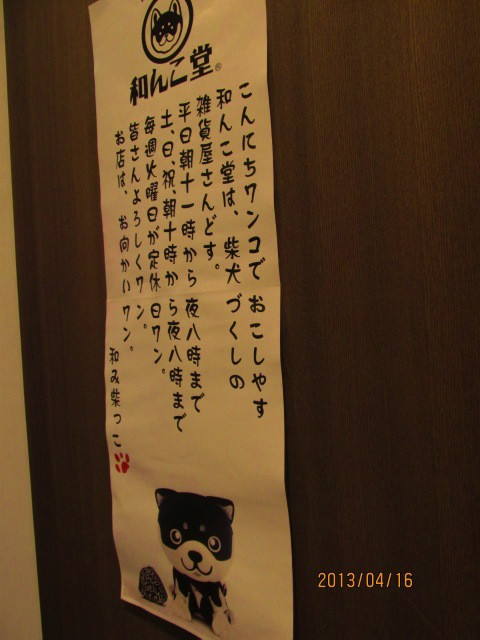 和んこ堂®
こんにちワンコで おこしやす
和んこ堂は、柴犬づくしの
雑貨屋さんどす。
平日朝十一時から 夜八時まで
土、日、祝、朝十時から夜八時まで
毎週火曜日が定休日ワン。
皆さんよろしくワン。
お店は、お向かいワン。
和み柴っこ
2013/04/16